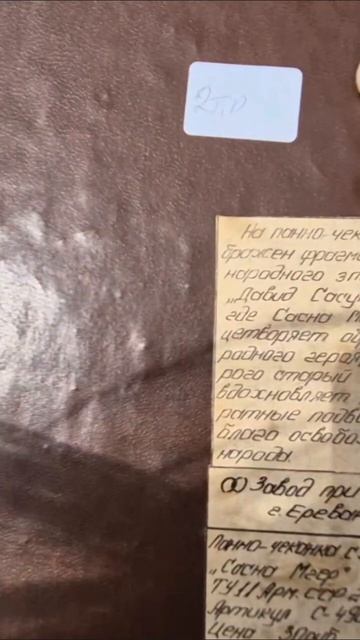 2т.р
На панно-чек
бражен фрагм
народного эп
„Давид Сасу
где Сасна М
цетворяет о
родного геро
рого старый
вдохновляет
ратные подв
благо освобо
народа.
Завод при
г. Ереван
Панно-чеканка С
„Сасна Мгер"
ТУ 11 Арм. ССР
Артикул С-4
Цена